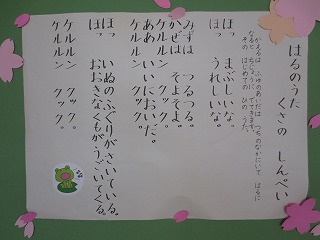 はるのうた
くさの しんぺい
かえるは ふゆのあいだは つちのなかにいて はるに
なると ちじょうに でてきます。
その はじめての ひの うた。
ほっ まぶしいな。
ほっ うれしいな。
みずは つるつる。
かぜは そよそよ。
ケルルン クック。
ああいいにおいだ。
ケルルン クック。
ほっ いぬのふぐりがさいている。
ほっ おおきなくもがうごいてくる。
ケルルン クック。
ケルルン クック。